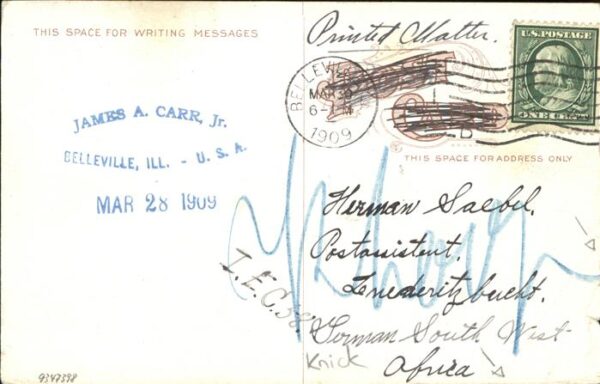 THIS SPACE FOR WRITING MESSAGES
Printed Matter.
U.S. POSTAGE
ONE CENT
BELLEVILLE
MAR 30
6-PM
1909
B
THIS SPACE FOR ADDRESS ONLY
JAMES A. CARR, Jr.
BELLEVILLE, ILL. - U. S. A.
MAR 28 1909
Herman Saebel.
Postassistent.
Luederitzbucht.
German South West
Africa
I.E.C.58.
Knick
9347398